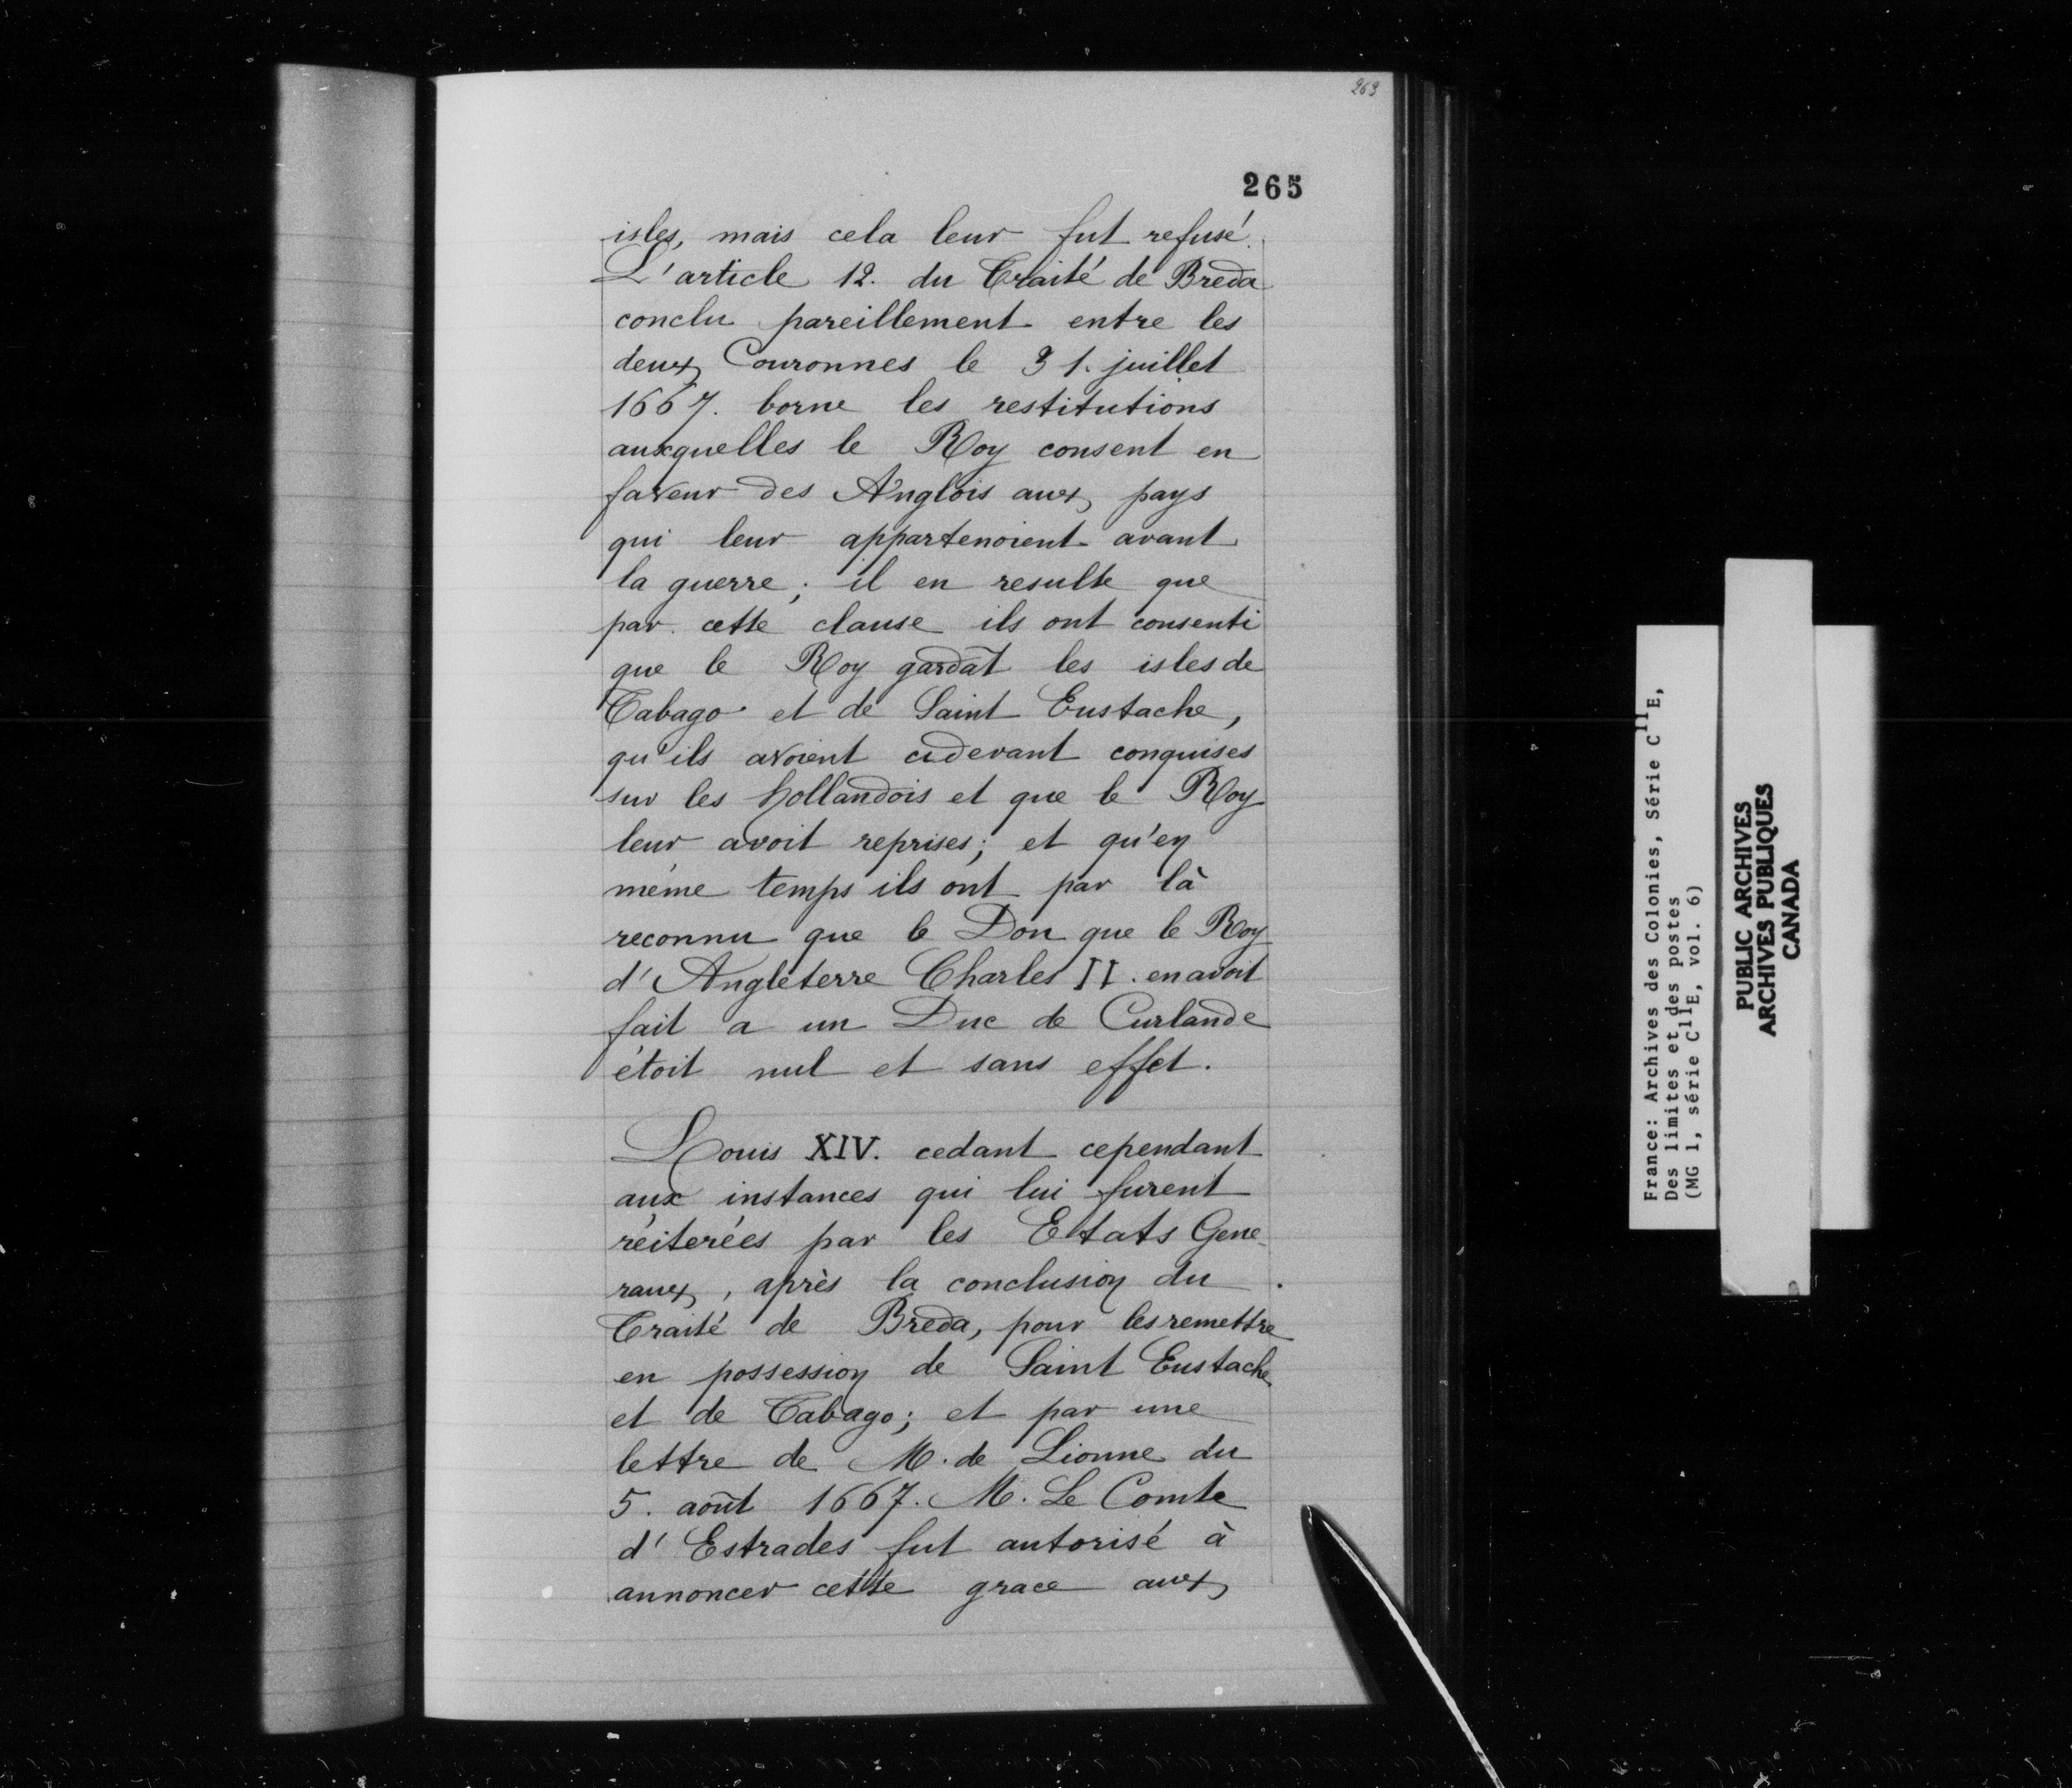 263
265
isles, mais cela leur fut refusé.
L'article 12. du Traité de Breda
conclu pareillement entre les
deux Couronnes le 31. juillet
1667. borne les restitutions
auxquelles le Roy consent en
faveur des Anglois aux pays
qui leur appartenoient avant
la guerre; il en resulte que
par cette clause ils ont consenti
que le Roy gardât les isles de
Tabago et de Saint Eustache,
qu'ils avoient cidevant conquises
sur les hollandois et que le Roy
leur avoit reprises; et qu'en
même temps ils ont par là
reconnu que le Don que le Roy
d'Angleterre Charles II. en avoit
fait a un Duc de Curlande
étoit nul et sans effet.
Louis XIV. cedant cependant
aux instances qui lui furent
réiterées par les Etats Gene-
raux, après la conclusion du
Traité de Breda, pour les remettre
en possession de Saint Eustache
et de Tabago; et par une
lettre de M. de Lionne du
5. août 1667. M. Le Comte
d'Estrades fut autorisé à
annoncer cette grace aux
France: Archives des Colonies, Série C11E,
Des limites et des postes
(MG 1, série C11E, vol. 6)
PUBLIC ARCHIVES
ARCHIVES PUBLIQUES
CANADA